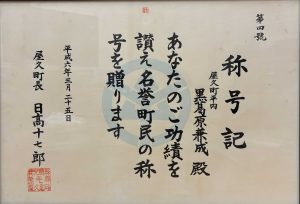 第四號
称号記
屋久町平内
黒葛原兼成 殿
あなたのご功績を
讃え名誉町民の称
号を贈ります
平成六年三月二十五日
屋久町長 日高十七郎